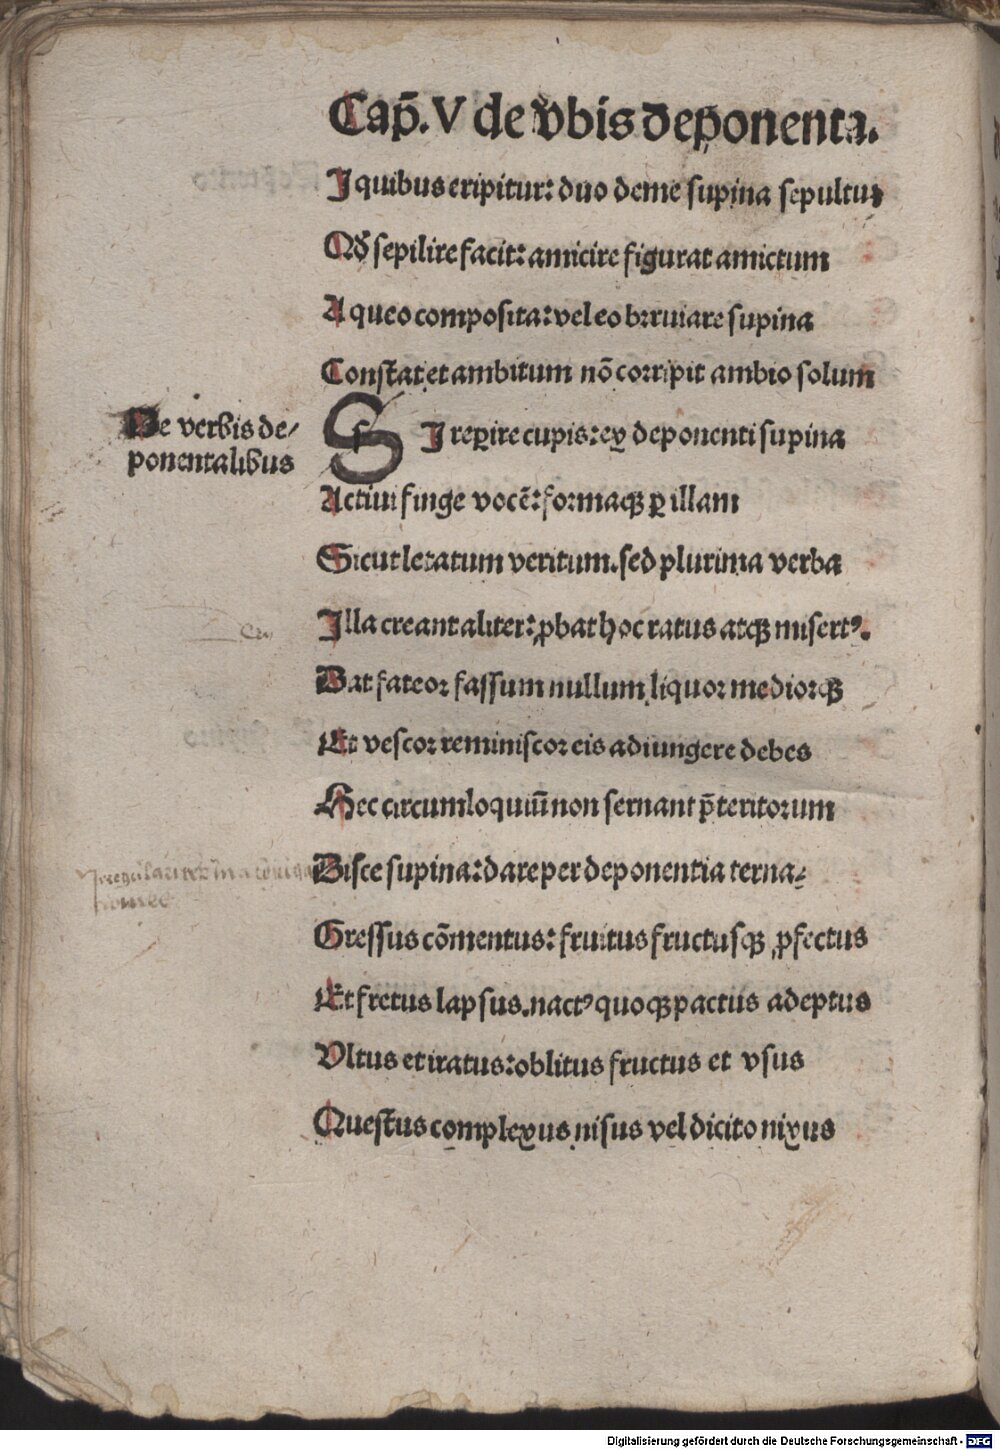 Cap̄. V de v̄bis deponenta.
I quibus eripitur: duo deme supina sepultus
Qđ sepilire facit: amicire figurat amictum
A queo composita: vel eo breuiare supina
Constat et ambitum nō corripit ambio solum
De verbis de⸗
ponentalibus
SI reꝑire cupis: ex deponenti supina
Actiui finge vocē: formaqꝫ ꝑ illam
Sicut letatum veritum. sed plurima verba
Illa creant aliter: ꝓbat hoc ratus atqꝫ misertꝰ.
Dat fateor fassum nullum liquor mediorqꝫ
Et vescor reminiscor eis adiungere debes
Hec circumloquiū non seruant p̄teritorum
Disce supina: dare per deponentia terna⸗
Gressus cōmentus: fruitus fructusqꝫ ꝓfectus
Et fretus lapsus. nactꝰ quoqꝫ pactus adeptus
Vltus et iratus: oblitus fructus et vsus
Questus complexus nisus vel dicito nixus
Digitalisierung gefördert durch die Deutsche Forschungsgemeinschaft - DFG